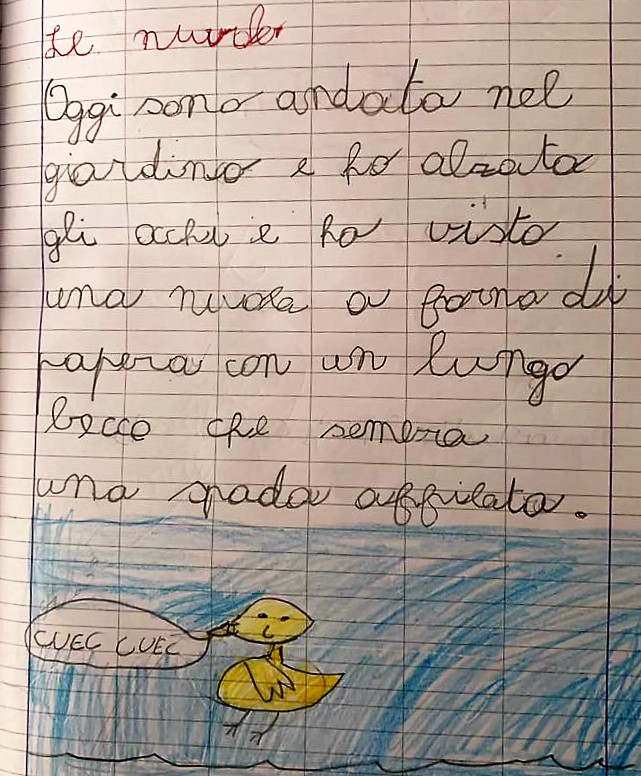 Le nuvole
Oggi sono andata nel
giardino e ho alzato
gli occhi e ho visto
una nuvola a forma di
papera con un lungo
becco che sembra
una spada affilata.
CUEC CUEC